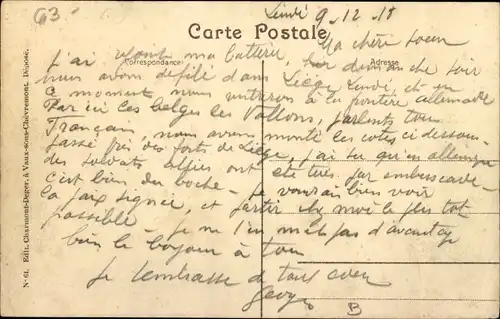 63
Lundi 9-12-18
Carte Postale
Correspondance
Adresse
Ma chère soeur
J'ai rejoint ma batterie, hier dimanche soir
nous avons défilé dans Liège Lundi, et en
ce moment nous rentrons à la frontière allemande
Par ici les belges les Vallons, parlent tous
Français, nous avons monté les cotes ci dessous
passé près des forts de Liège, j'ai su qu'en allemagne
des soldats alliés ont été tués par embuscade
c'est bien du boche - je voudrais bien voir
la paix signée, et partir chez moi le plus tot
possible - je ne t'en met pas d'avantage
bien le bonjour à tous
Je t'embrasse de tout coeur
Georges
B
N° 61. Edit. Charmont-Deger, à Vaux-sous-Chèvremont. Déposé.